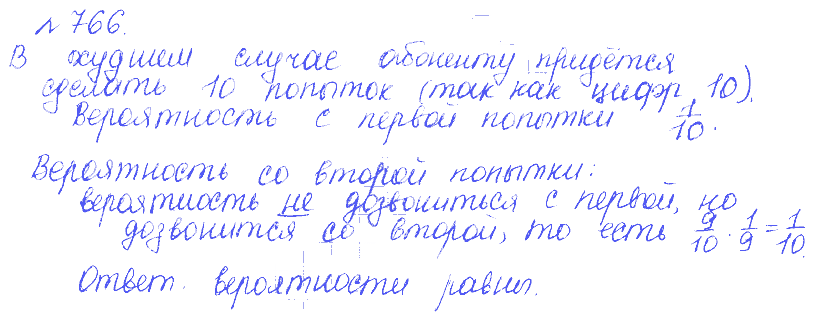 № 766.
В худшем случае абоненту придётся
сделать 10 попыток (так как цифр 10).
Вероятность с первой попытки 1/10.
Вероятность со второй попытки:
вероятность не дозвониться с первой, но
дозвонится со второй, то есть 9/10 · 1/9 = 1/10.
Ответ. вероятности равны.